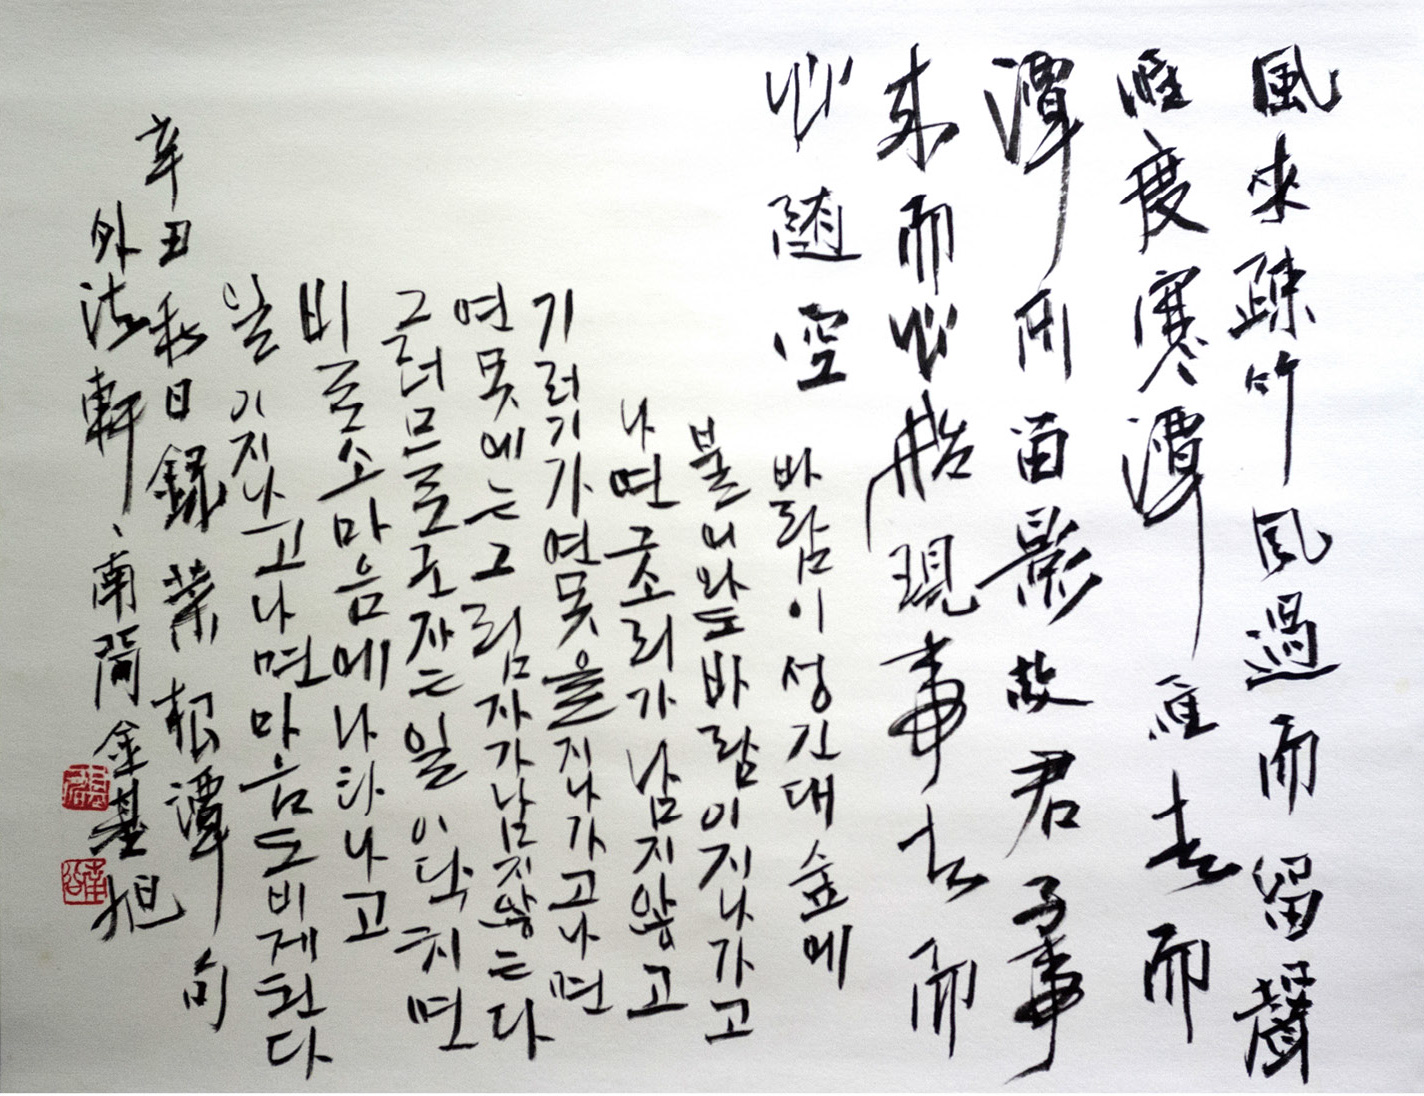 風來疎竹風過而留聲
雁度寒潭雁去而
潭不留影故君子事
來而心始現事去而
心随空
바람이성긴대숲에
불어와도바람이지나가고
나면그소리가남지않고
기러기가연못을지나가고나면
연못에는그림자가남지않는다
그러므로군자는일이닥치면
비로소마음에나타나고
일이지나고나면마음도비게된다
辛丑秋日錄菜根潭句
外法軒、南 金基旭